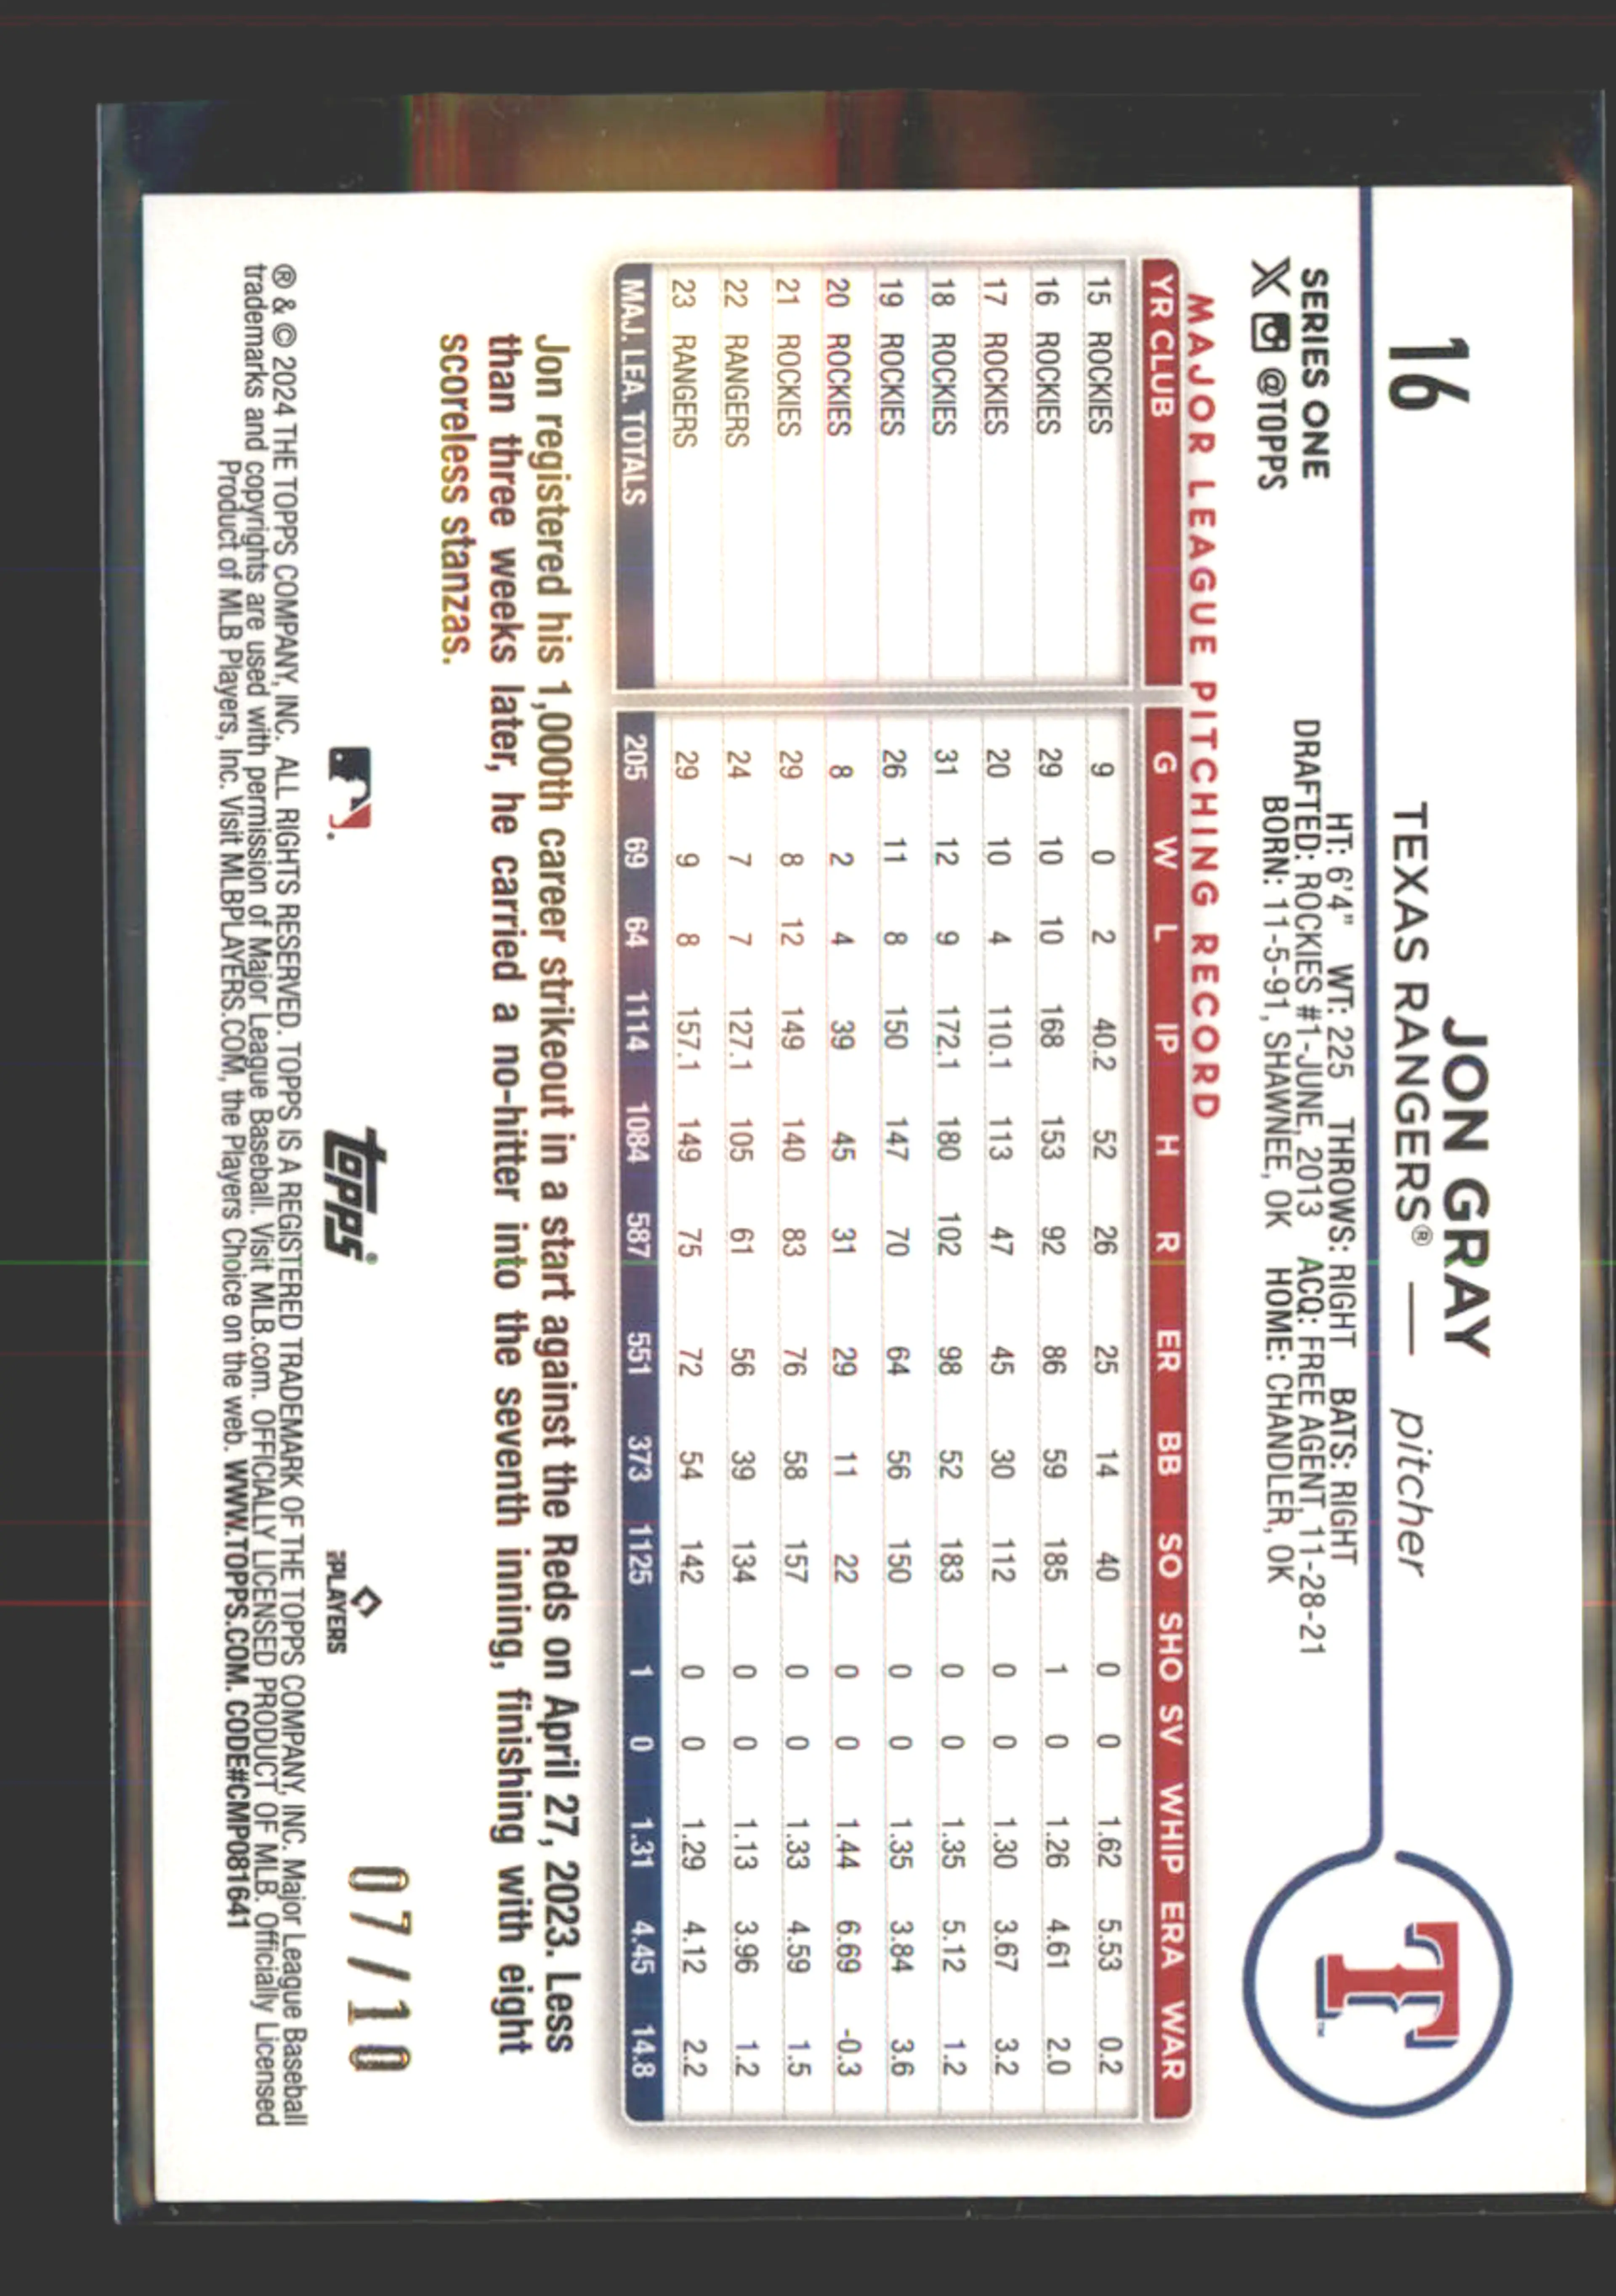 16
JON GRAY
TEXAS RANGERS® — pitcher
SERIES ONE
X @TOPPS
HT: 6'4" WT: 225 THROWS: RIGHT BATS: RIGHT
DRAFTED: ROCKIES #1-JUNE, 2013 ACQ: FREE AGENT, 11-28-21
BORN: 11-5-91, SHAWNEE, OK HOME: CHANDLER, OK
T™
MAJOR LEAGUE PITCHING RECORD
YR CLUB G W L IP H R ER BB SO SHO SV WHIP ERA WAR
15 ROCKIES 9 0 2 40.2 52 26 25 14 40 0 0 1.62 5.53 0.2
16 ROCKIES 29 10 10 168 153 92 86 59 185 1 0 1.26 4.61 2.0
17 ROCKIES 20 10 4 110.1 113 47 45 30 112 0 0 1.30 3.67 3.2
18 ROCKIES 31 12 9 172.1 180 102 98 52 183 0 0 1.35 5.12 1.2
19 ROCKIES 26 11 8 150 147 70 64 56 150 0 0 1.35 3.84 3.6
20 ROCKIES 8 2 4 39 45 31 29 11 22 0 0 1.44 6.69 -0.3
21 ROCKIES 29 8 12 149 140 83 76 58 157 0 0 1.33 4.59 1.5
22 RANGERS 24 7 7 127.1 105 61 56 39 134 0 0 1.13 3.96 1.2
23 RANGERS 29 9 8 157.1 149 75 72 54 142 0 0 1.29 4.12 2.2
MAJ. LEA. TOTALS 205 69 64 1114 1084 587 551 373 1125 1 0 1.31 4.45 14.8
Jon registered his 1,000th career strikeout in a start against the Reds on April 27, 2023. Less
than three weeks later, he carried a no-hitter into the seventh inning, finishing with eight
scoreless stanzas.
topps®
PLAYERS
07/10
® & © 2024 THE TOPPS COMPANY, INC. ALL RIGHTS RESERVED. TOPPS IS A REGISTERED TRADEMARK OF THE TOPPS COMPANY, INC. Major League Baseball
trademarks and copyrights are used with permission of Major League Baseball. Visit MLB.com. OFFICIALLY LICENSED PRODUCT OF MLB. Officially Licensed
Product of MLB Players, Inc. Visit MLBPLAYERS.COM, the Players Choice on the web. WWW.TOPPS.COM. CODE#CMP081641